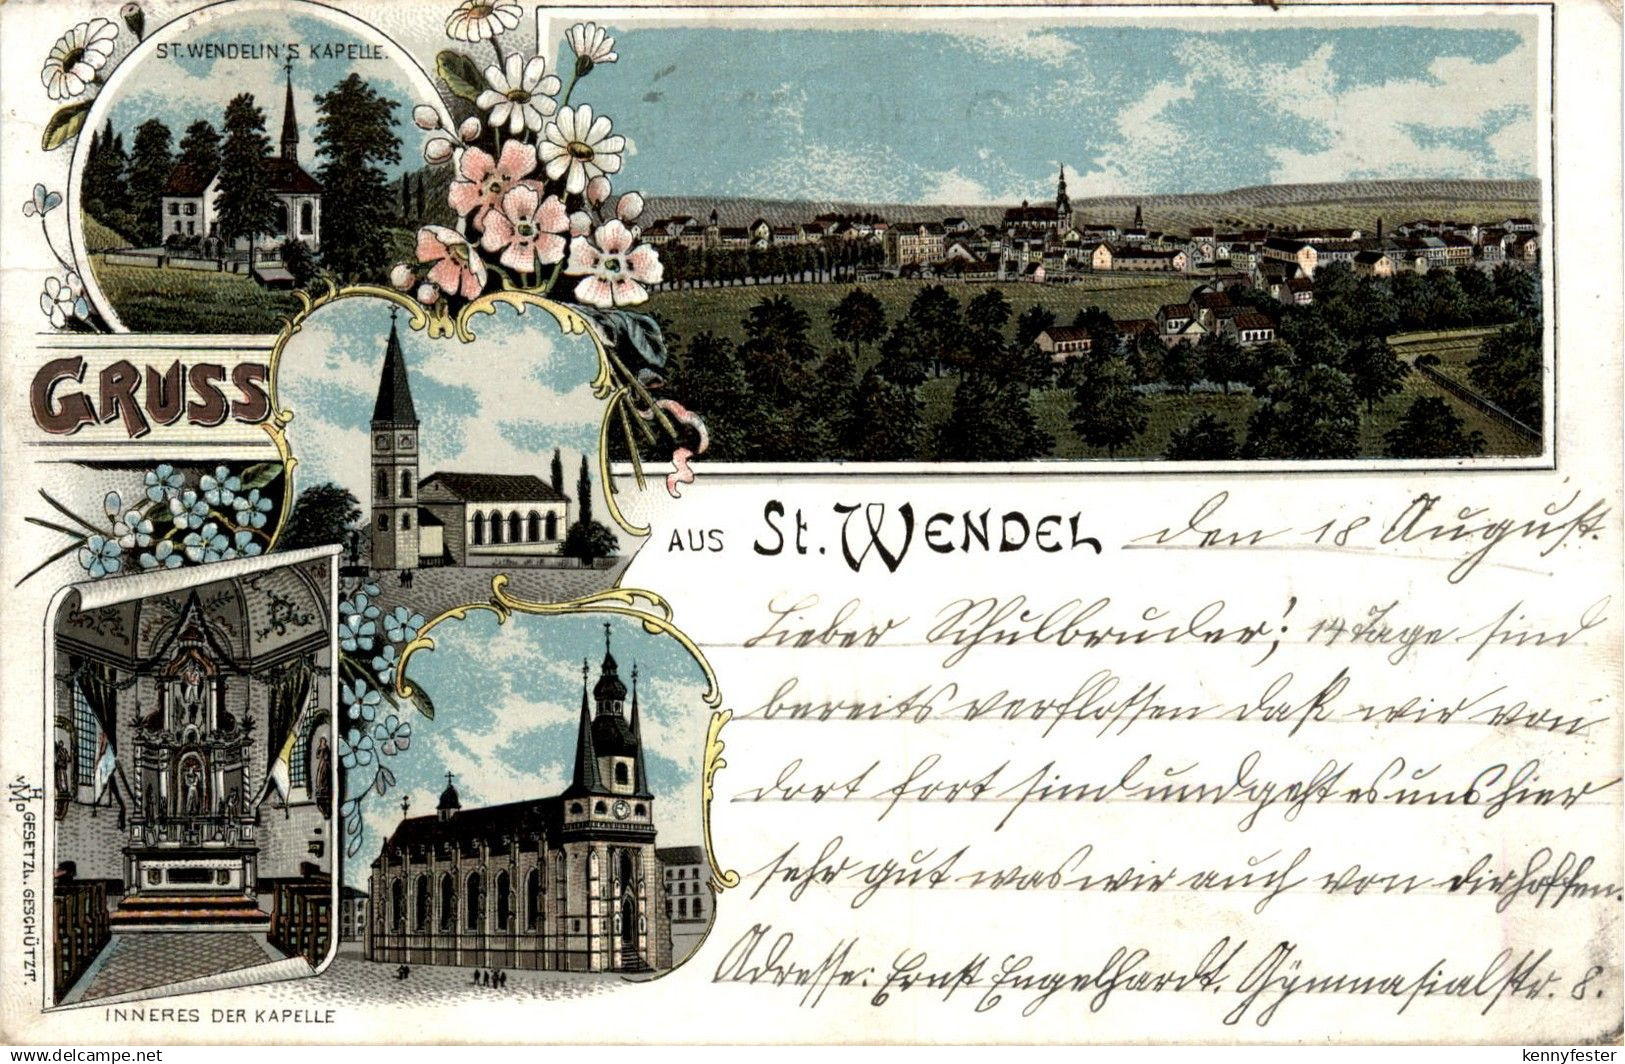 ST. WENDELIN'S KAPELLE.
GRUSS
AUS St. WENDEL den 18 August.
Lieber Schulbruder! 14 Tage sind
bereits verflossen daß wir von
dort fort sind und geht es uns hier
sehr gut was wir auch von dir hoffen.
Adresse: Ernst Engelhardt. Gymnasialstr. 8.
GESETZL. GESCHÜTZT.
INNERES DER KAPELLE
delcampe.net
kennyfester